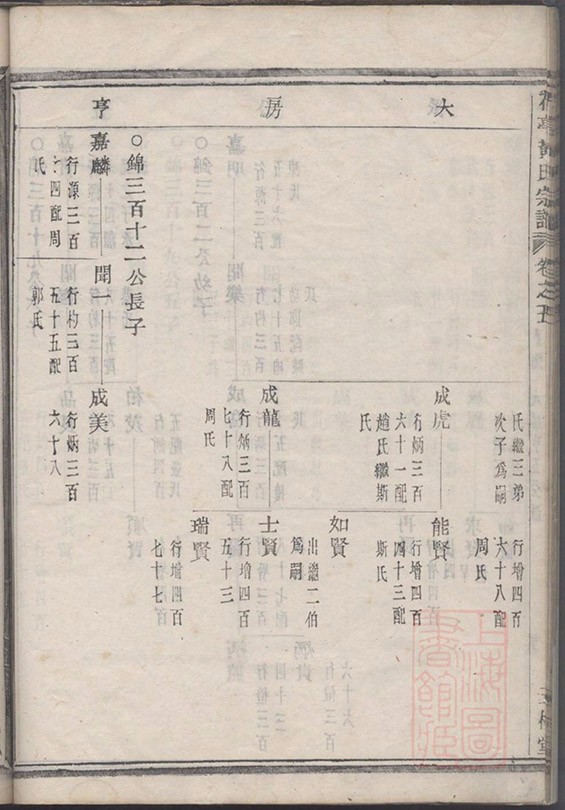 黃氏宗譜
卷之五
大房亨
氏繼三弟
次子為嗣
行增四百
六十八配
周氏
成虎
行炳三百
六十一配
趙氏繼斯
氏
能賢
行增四百
四十三配
斯氏
如賢
出繼二伯
為嗣
成龍
行炳三百
七十八配
周氏
士賢
行增四百
五十三
瑞賢
行增四百
七十七
○錦三百十二公長子
嘉麟
行源三百
十四配周
氏
聞一
行杓三百
五十五配
郭氏
成美
行炳三百
六十八
上海圖書館藏